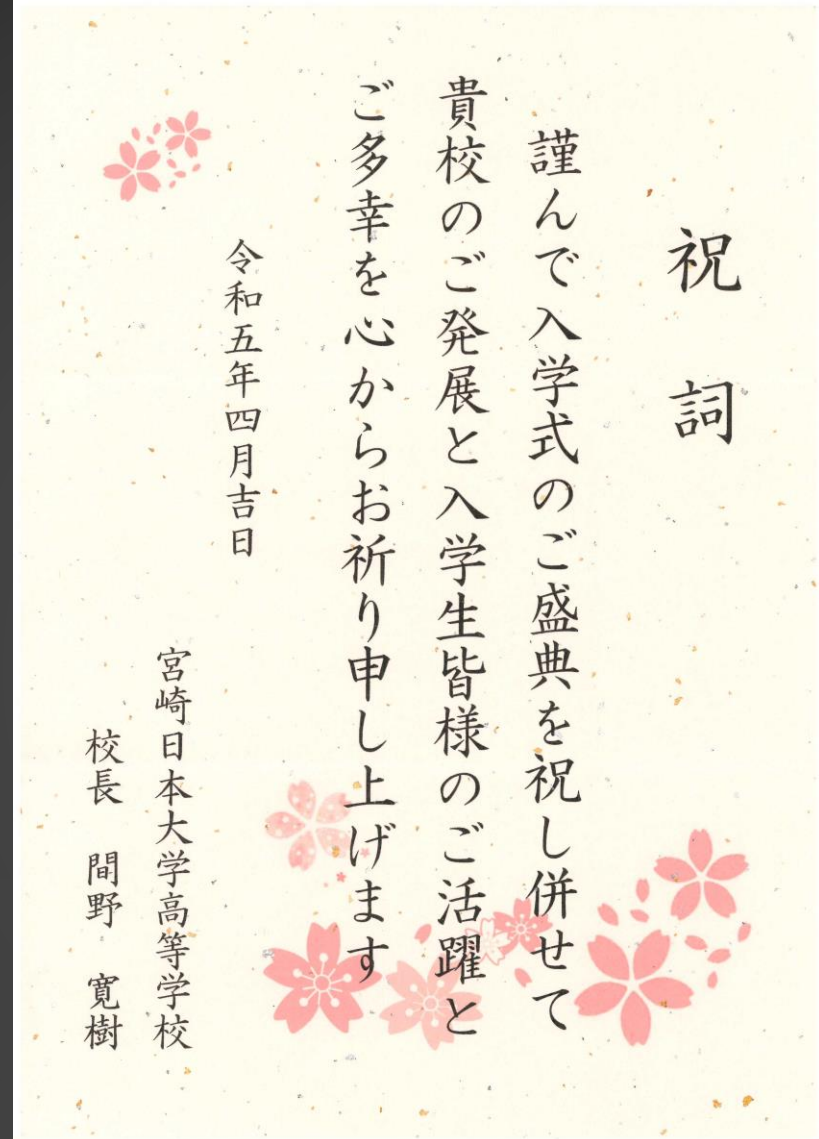 祝詞
謹んで入学式のご盛典を祝し併せて
貴校のご発展と入学生皆様のご活躍と
ご多幸を心からお祈り申し上げます
令和五年四月吉日
宮崎日本大学高等学校
校長 間野 寛樹